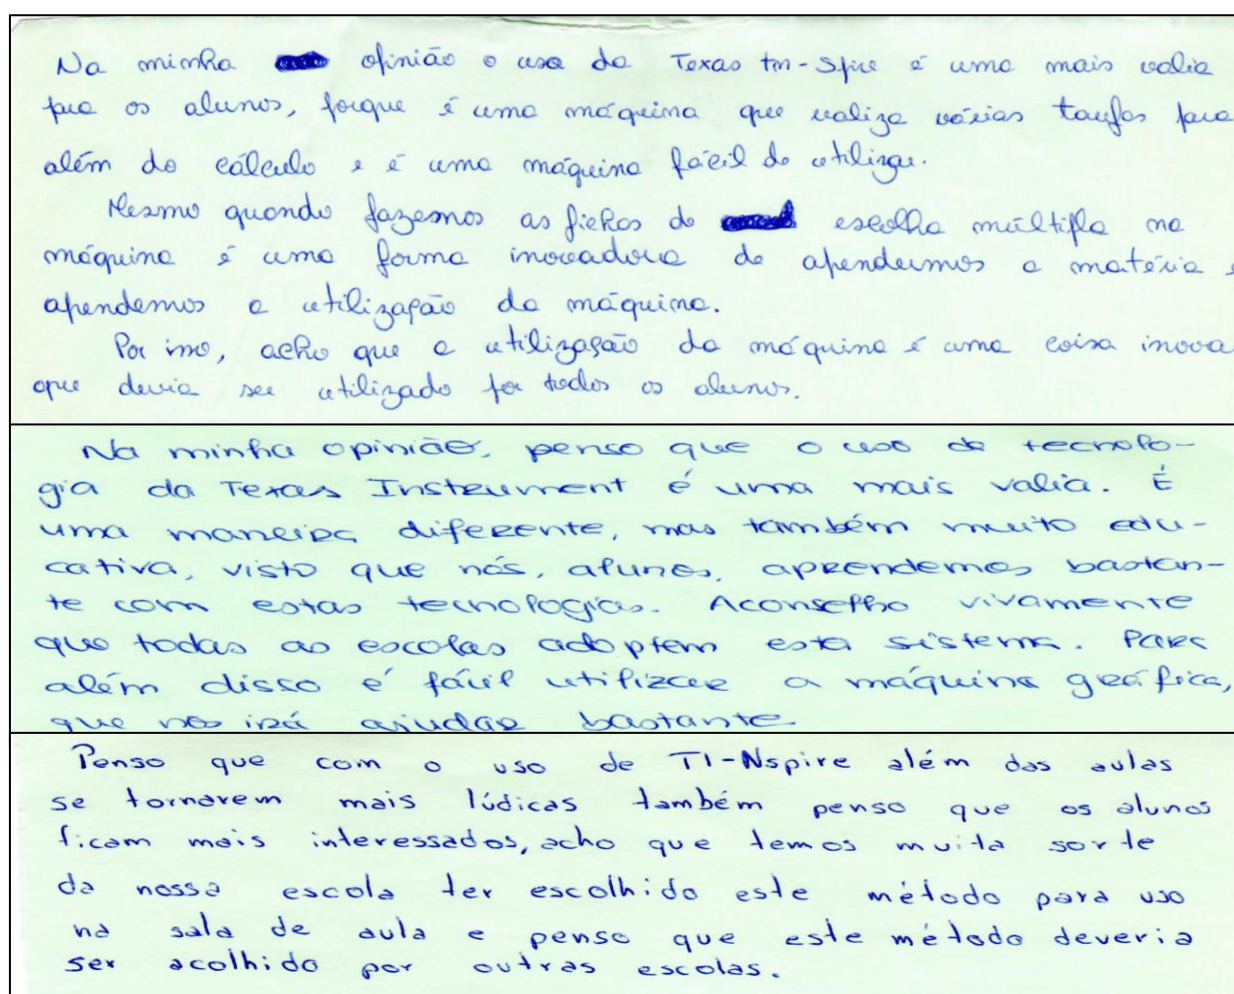 Na minha opinião o uso da Texas tm-Spire é uma mais valia
para os alunos, porque é uma máquina que realiza várias tarefas para
além do cálculo e é uma máquina fácil de utilizar.
Mesmo quando fazemos as fichas de escolha múltipla na
máquina é uma forma inovadora de aprendermos a matéria e
aprendemos a utilização da máquina.
Por isso, acho que a utilização da máquina é uma coisa inova
que devia ser utilizado por todos os alunos.
Na minha opinião, penso que o uso de tecnolo-
gia da Texas Instrument é uma mais valia. É
uma maneira diferente, mas também muito edu-
cativa, visto que nós, alunos, aprendemos bastan-
te com estas tecnologias. Aconselho vivamente
que todas as escolas adoptem esta sistema. Para
além disso é fácil utilizar a máquina gráfica,
que nos irá ajudar bastante.
Penso que com o uso de TI-Nspire além das aulas
se tornarem mais lúdicas também penso que os alunos
ficam mais interessados, acho que temos muita sorte
da nossa escola ter escolhido este método para uso
na sala de aula e penso que este método deveria
ser acolhido por outras escolas.